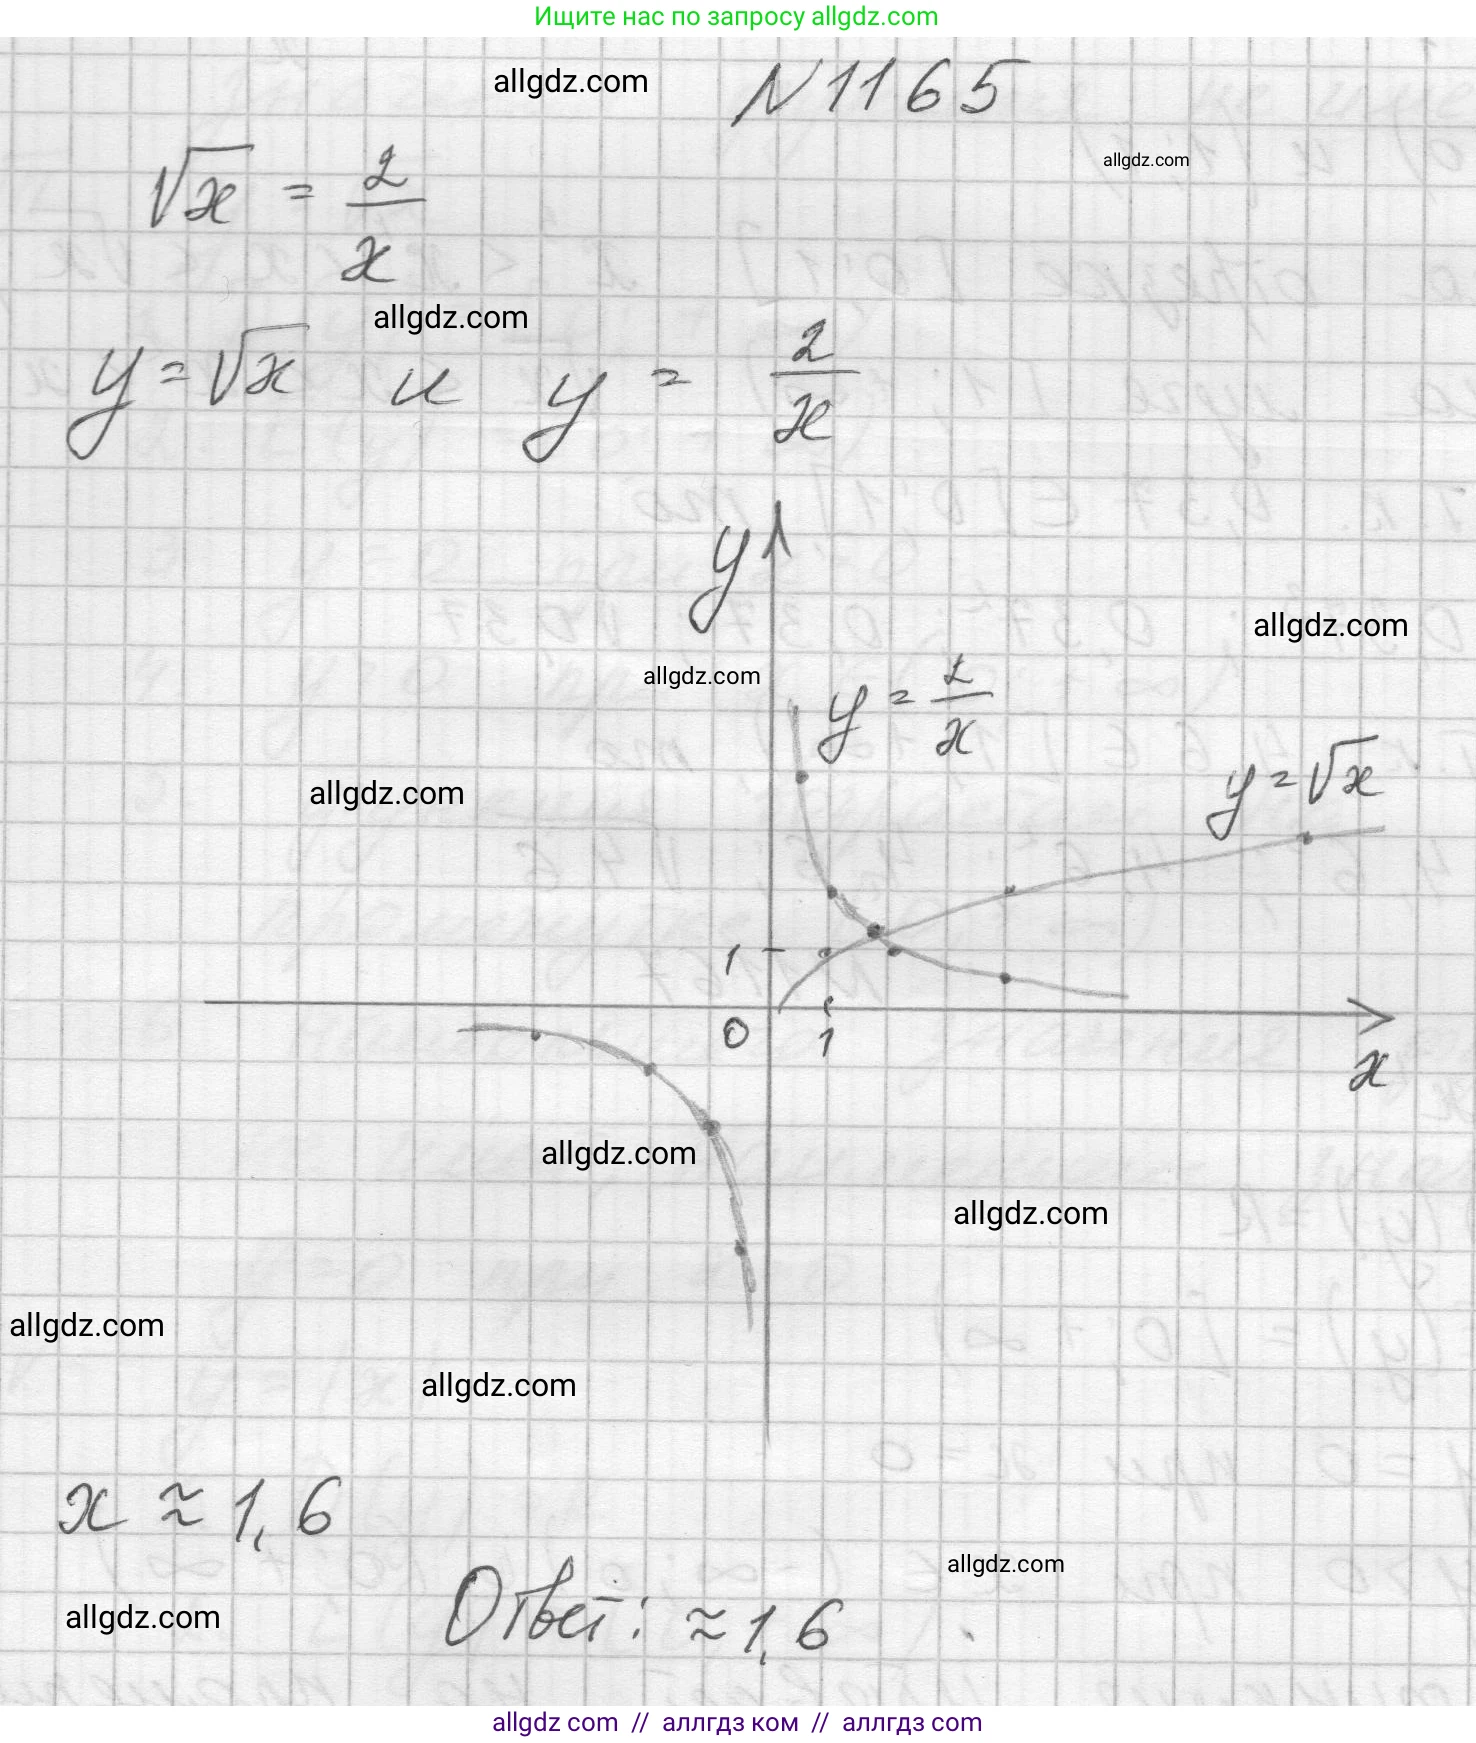 Ищите нас по запросу allgdz.com
allgdz.com
N 1165
allgdz.com
√x = 2/x
allgdz.com
y = √x и y = 2/x
y
allgdz.com
allgdz.com
y = 2/x
allgdz.com
y = √x
1
0
1
x
allgdz.com
allgdz.com
allgdz.com
allgdz.com
x ≈ 1,6
allgdz.com
Ответ: ≈ 1,6
allgdz.com
allgdz com // аллгдз ком // аллгдз com